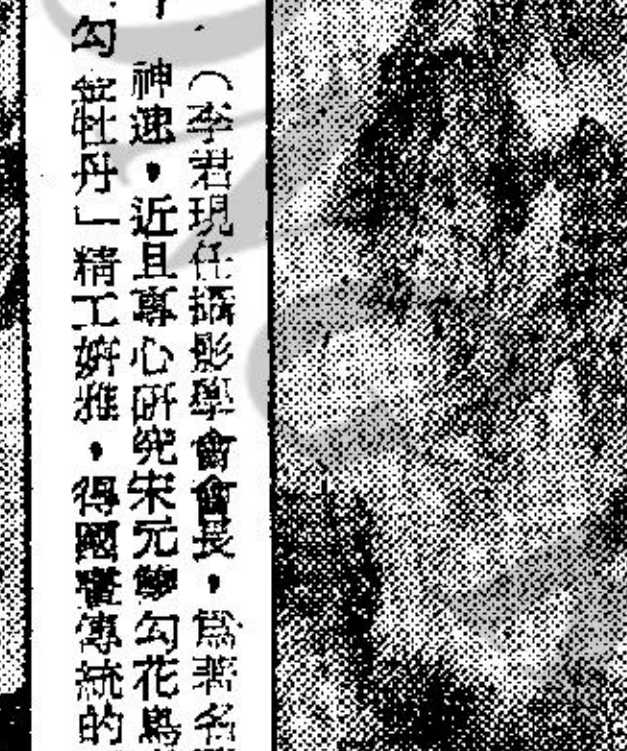 （李君現任攝影學會會長，為著名
神速，近且專心研究宋元雙勾花鳥
勾金牡丹」精工妍雅，得國畫傳統的